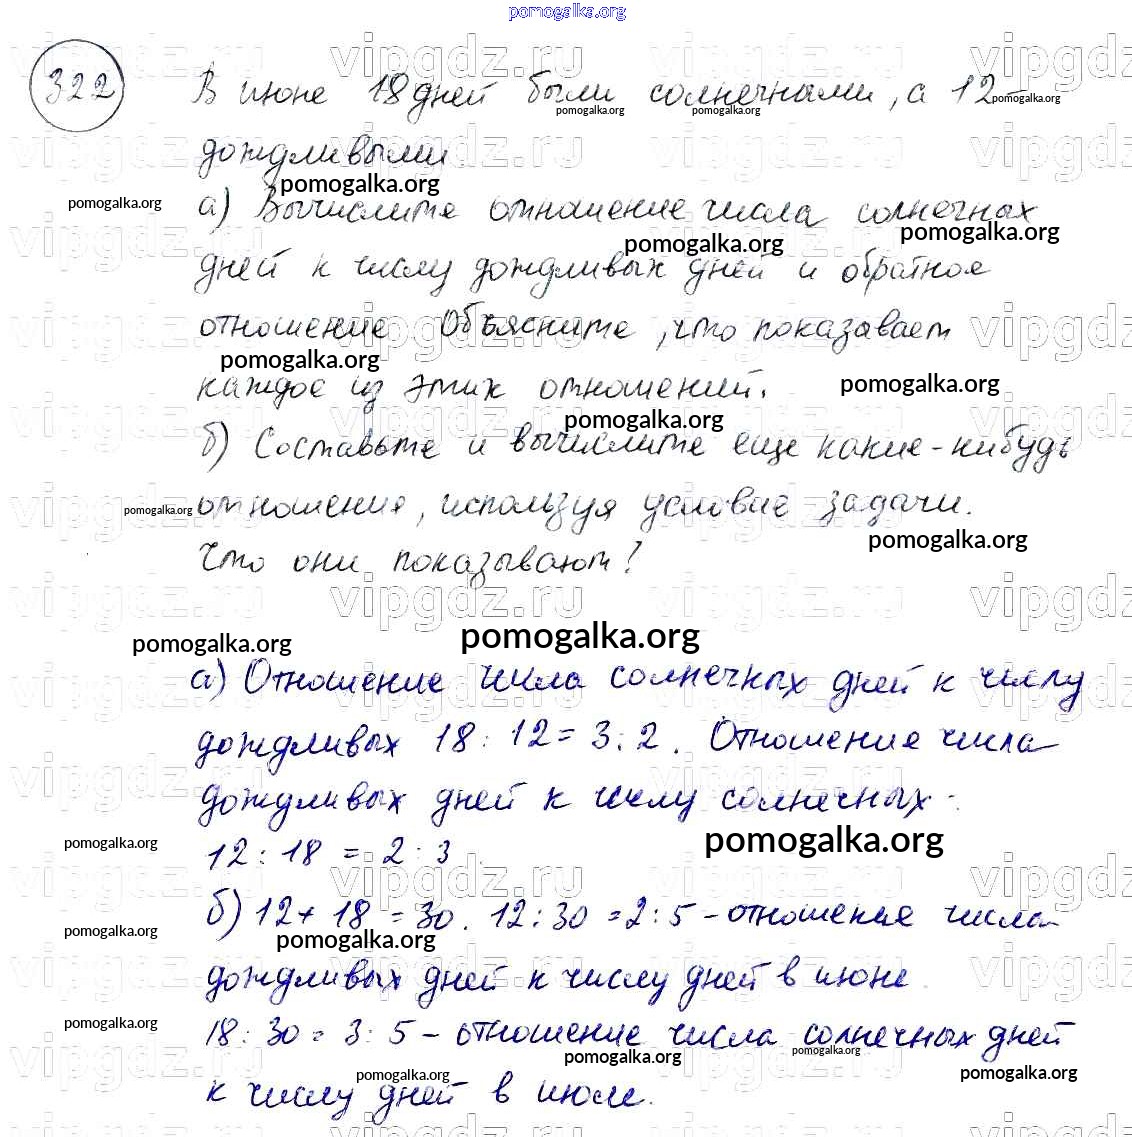 pomogalka.org
322
В июне 18 дней были солнечными, а 12 -
дождливыми.
а) Вычислите отношение числа солнечных
дней к числу дождливых дней и обратное
отношение. Объясните, что показывает
каждое из этих отношений.
б) Составьте и вычислите еще какие-нибудь
отношения, используя условие задачи.
Что они показывают?
pomogalka.org
а) Отношение числа солнечных дней к числу
дождливых 18 : 12 = 3 : 2. Отношение числа
дождливых дней к числу солнечных -
12 : 18 = 2 : 3.
б) 12 + 18 = 30. 12 : 30 = 2 : 5 - отношение числа
дождливых дней к числу дней в июне.
18 : 30 = 3 : 5 - отношение числа солнечных дней
к числу дней в июле.